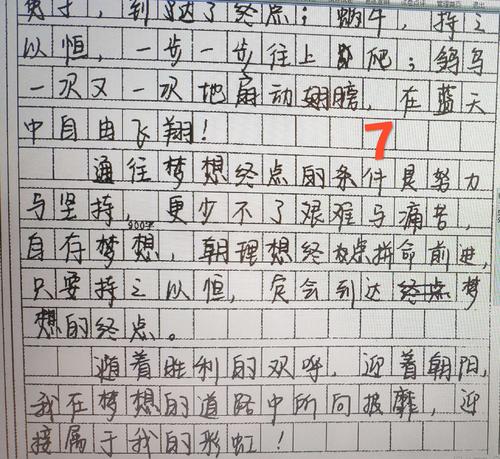 兔子，到达了终点；蜗牛，持之
以恒，一步一步往上爬；鸽鸟
一次又一次地扇动翅膀，在蓝天
中自由飞翔！
7
通往梦想终点的条件是努力
与坚持，更少不了艰难与痛苦，
900字
自存梦想，朝理想终极点拼命前进，
只要持之以恒，定会到达终点梦
想的终点。
随着胜利的欢呼，迎着朝阳，
我在梦想的道路中所向披靡，迎
接属于我的彩虹！